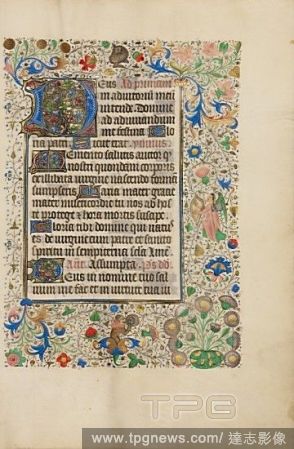 Deus Ad primam
in adiutoriū meū
intende. Domine
ad adiuuandum
me festina Glo
ria patri Sicut erat. ymnus.
Memento salutis auctor q
nostri quondam corporis
ex illibata uirgine nascendo formā
sumpseris Maria mater gracie
mater misericordie tu nos ab hos
te protege & hora mortis suscipe.
Gloria tibi domine qui natus
es de uirgine cum patre et sancto
spiritu in sempiterna secla Amē
Ant. Assumpta. ps dd.
Deus in nomine tuo sal
uum me fac et in uirtute tua iu
TPG
www.tpgnews.com／達志影像